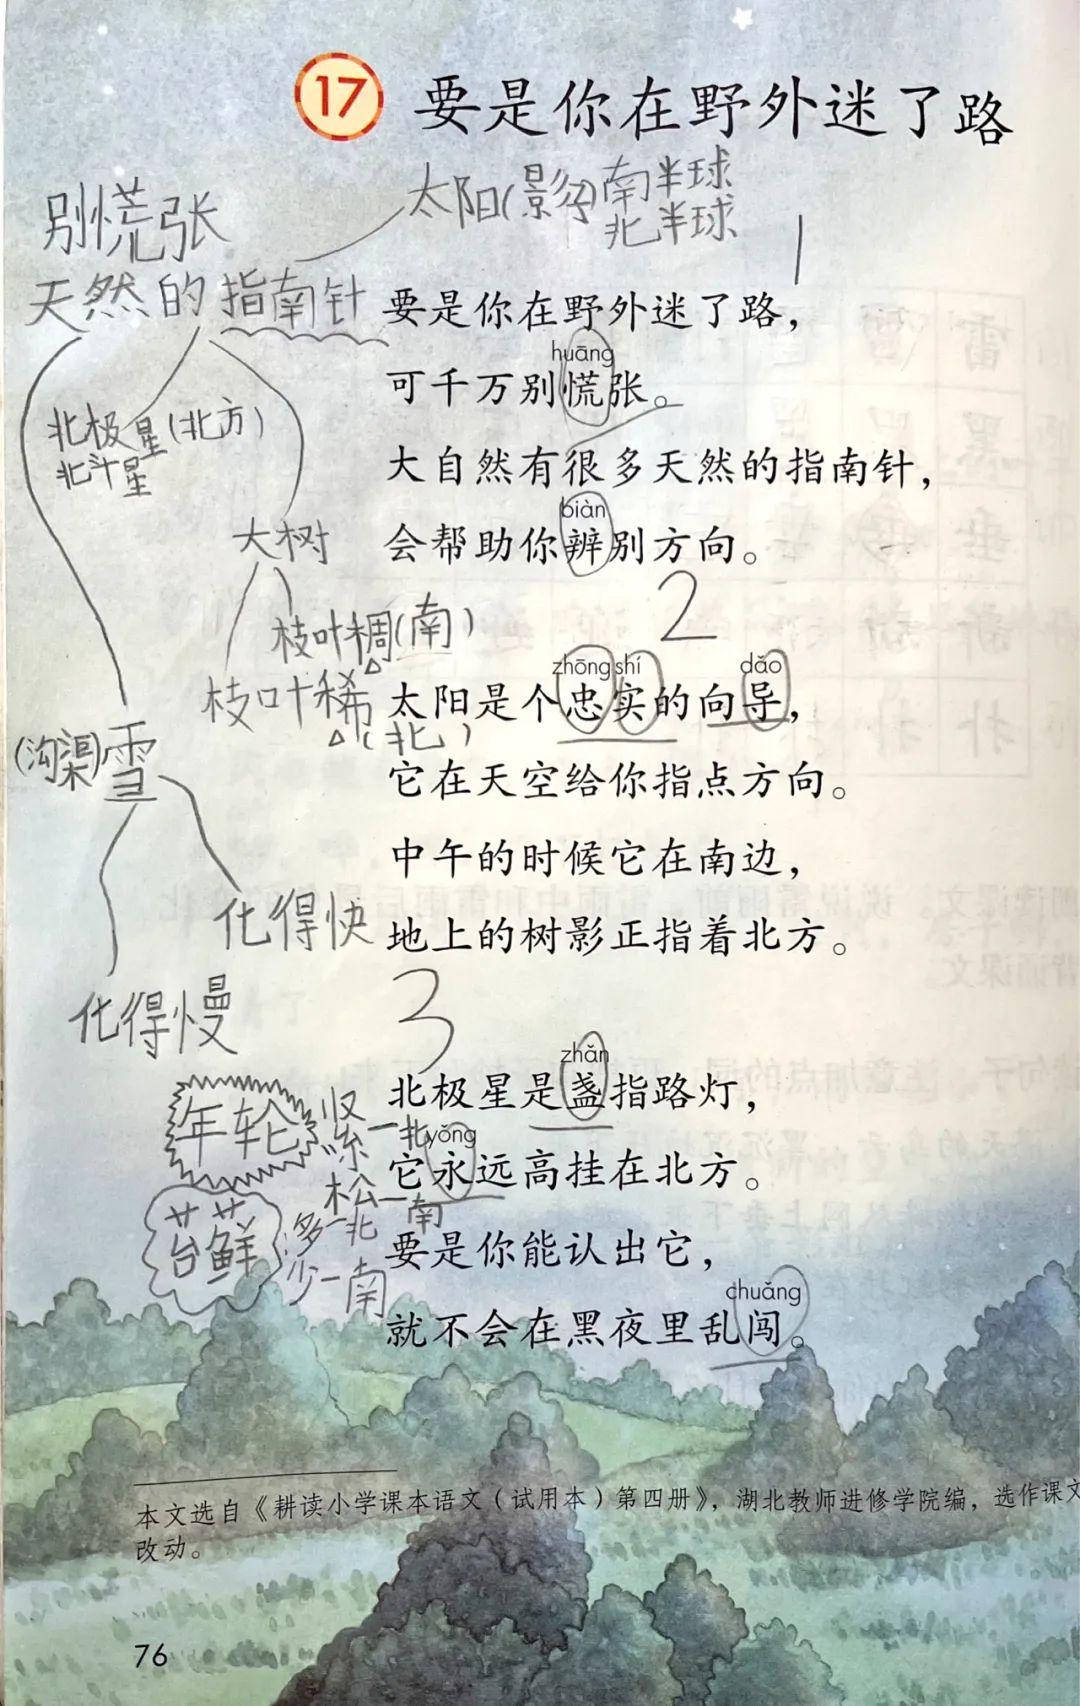 17 要是你在野外迷了路
太阳(影子)南半球
北半球
别慌张
天然的指南针
1
要是你在野外迷了路，
huāng
可千万别慌张。
北极星(北方)
北斗星
大自然有很多天然的指南针，
biàn
会帮助你辨别方向。
大树
2
枝叶稠(南)
枝叶稀(北)
zhōng shí dǎo
太阳是个忠实的向导，
(沟渠)雪
它在天空给你指点方向。
中午的时候它在南边，
化得快
地上的树影正指着北方。
化得慢
3
zhǎn
北极星是盏指路灯，
年轮 紧—北
松—南
yǒng
它永远高挂在北方。
苔藓 多—北
少—南
要是你能认出它，
chuǎng
就不会在黑夜里乱闯。
本文选自《耕读小学课本语文（试用本）第四册》，湖北教师进修学院编，选作课文
改动。
76